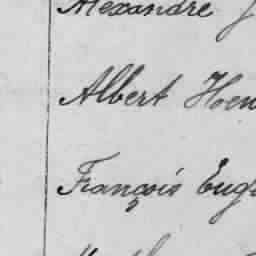 Alexandre
Albert Hoen
François Eug